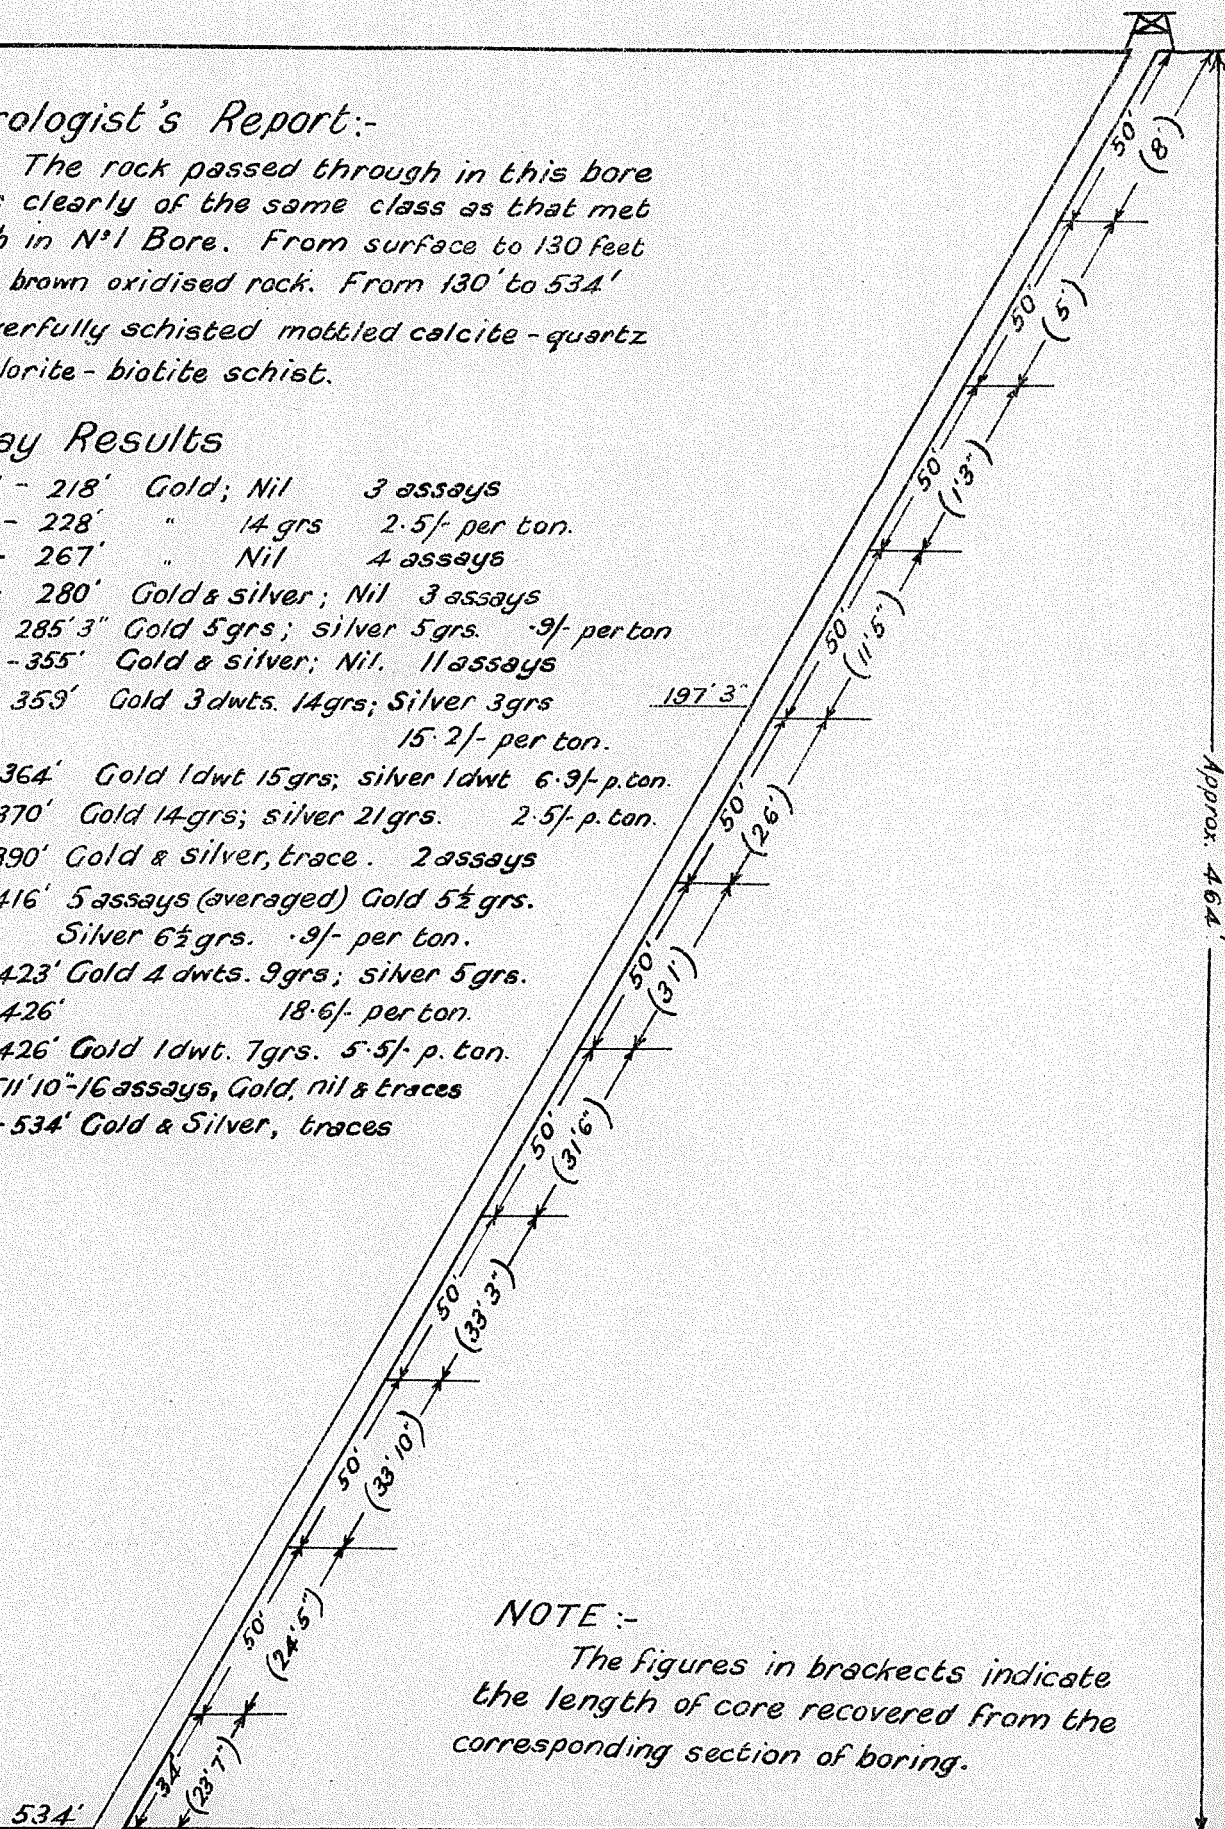 rologist's Report:-
The rock passed through in this bore
clearly of the same class as that met
in Nº1 Bore. From surface to 130 feet
brown oxidised rock. From 130' to 534'
erfully schisted mottled calcite - quartz
lorite - biotite schist.
ay Results
- 218' Gold; Nil 3 assays
- 228' " 14 grs 2·5/- per ton.
- 267' " Nil 4 assays
280' Gold & silver; Nil 3 assays
285' 3" Gold 5grs; silver 5grs. ·9/- per ton
- 355' Gold & silver; Nil. 11 assays
359' Gold 3 dwts. 14grs; Silver 3grs
15·2/- per ton.
364' Gold 1dwt 15grs; silver 1dwt 6·9/- p.ton.
370' Gold 14grs; silver 21grs. 2·5/- p.ton.
390' Gold & silver, trace. 2 assays
416' 5 assays (averaged) Gold 5½ grs.
Silver 6½ grs. ·9/- per ton.
423' Gold 4 dwts. 9grs; silver 5grs.
426' 18·6/- per ton.
426' Gold 1dwt. 7grs. 5·5/- p. ton.
511'10"-16 assays, Gold, nil & traces
- 534' Gold & Silver, traces
50'
(8')
50'
(5')
50'
(1'3")
50'
(11'5")
197' 3"
50'
(26')
50'
(31')
50'
(31'6")
50'
(33'3")
50'
(33'10")
50'
(24'5")
34'
(23'7")
534'
Approx. 464'
NOTE :-
The figures in brackects indicate
the length of core recovered from the
corresponding section of boring.